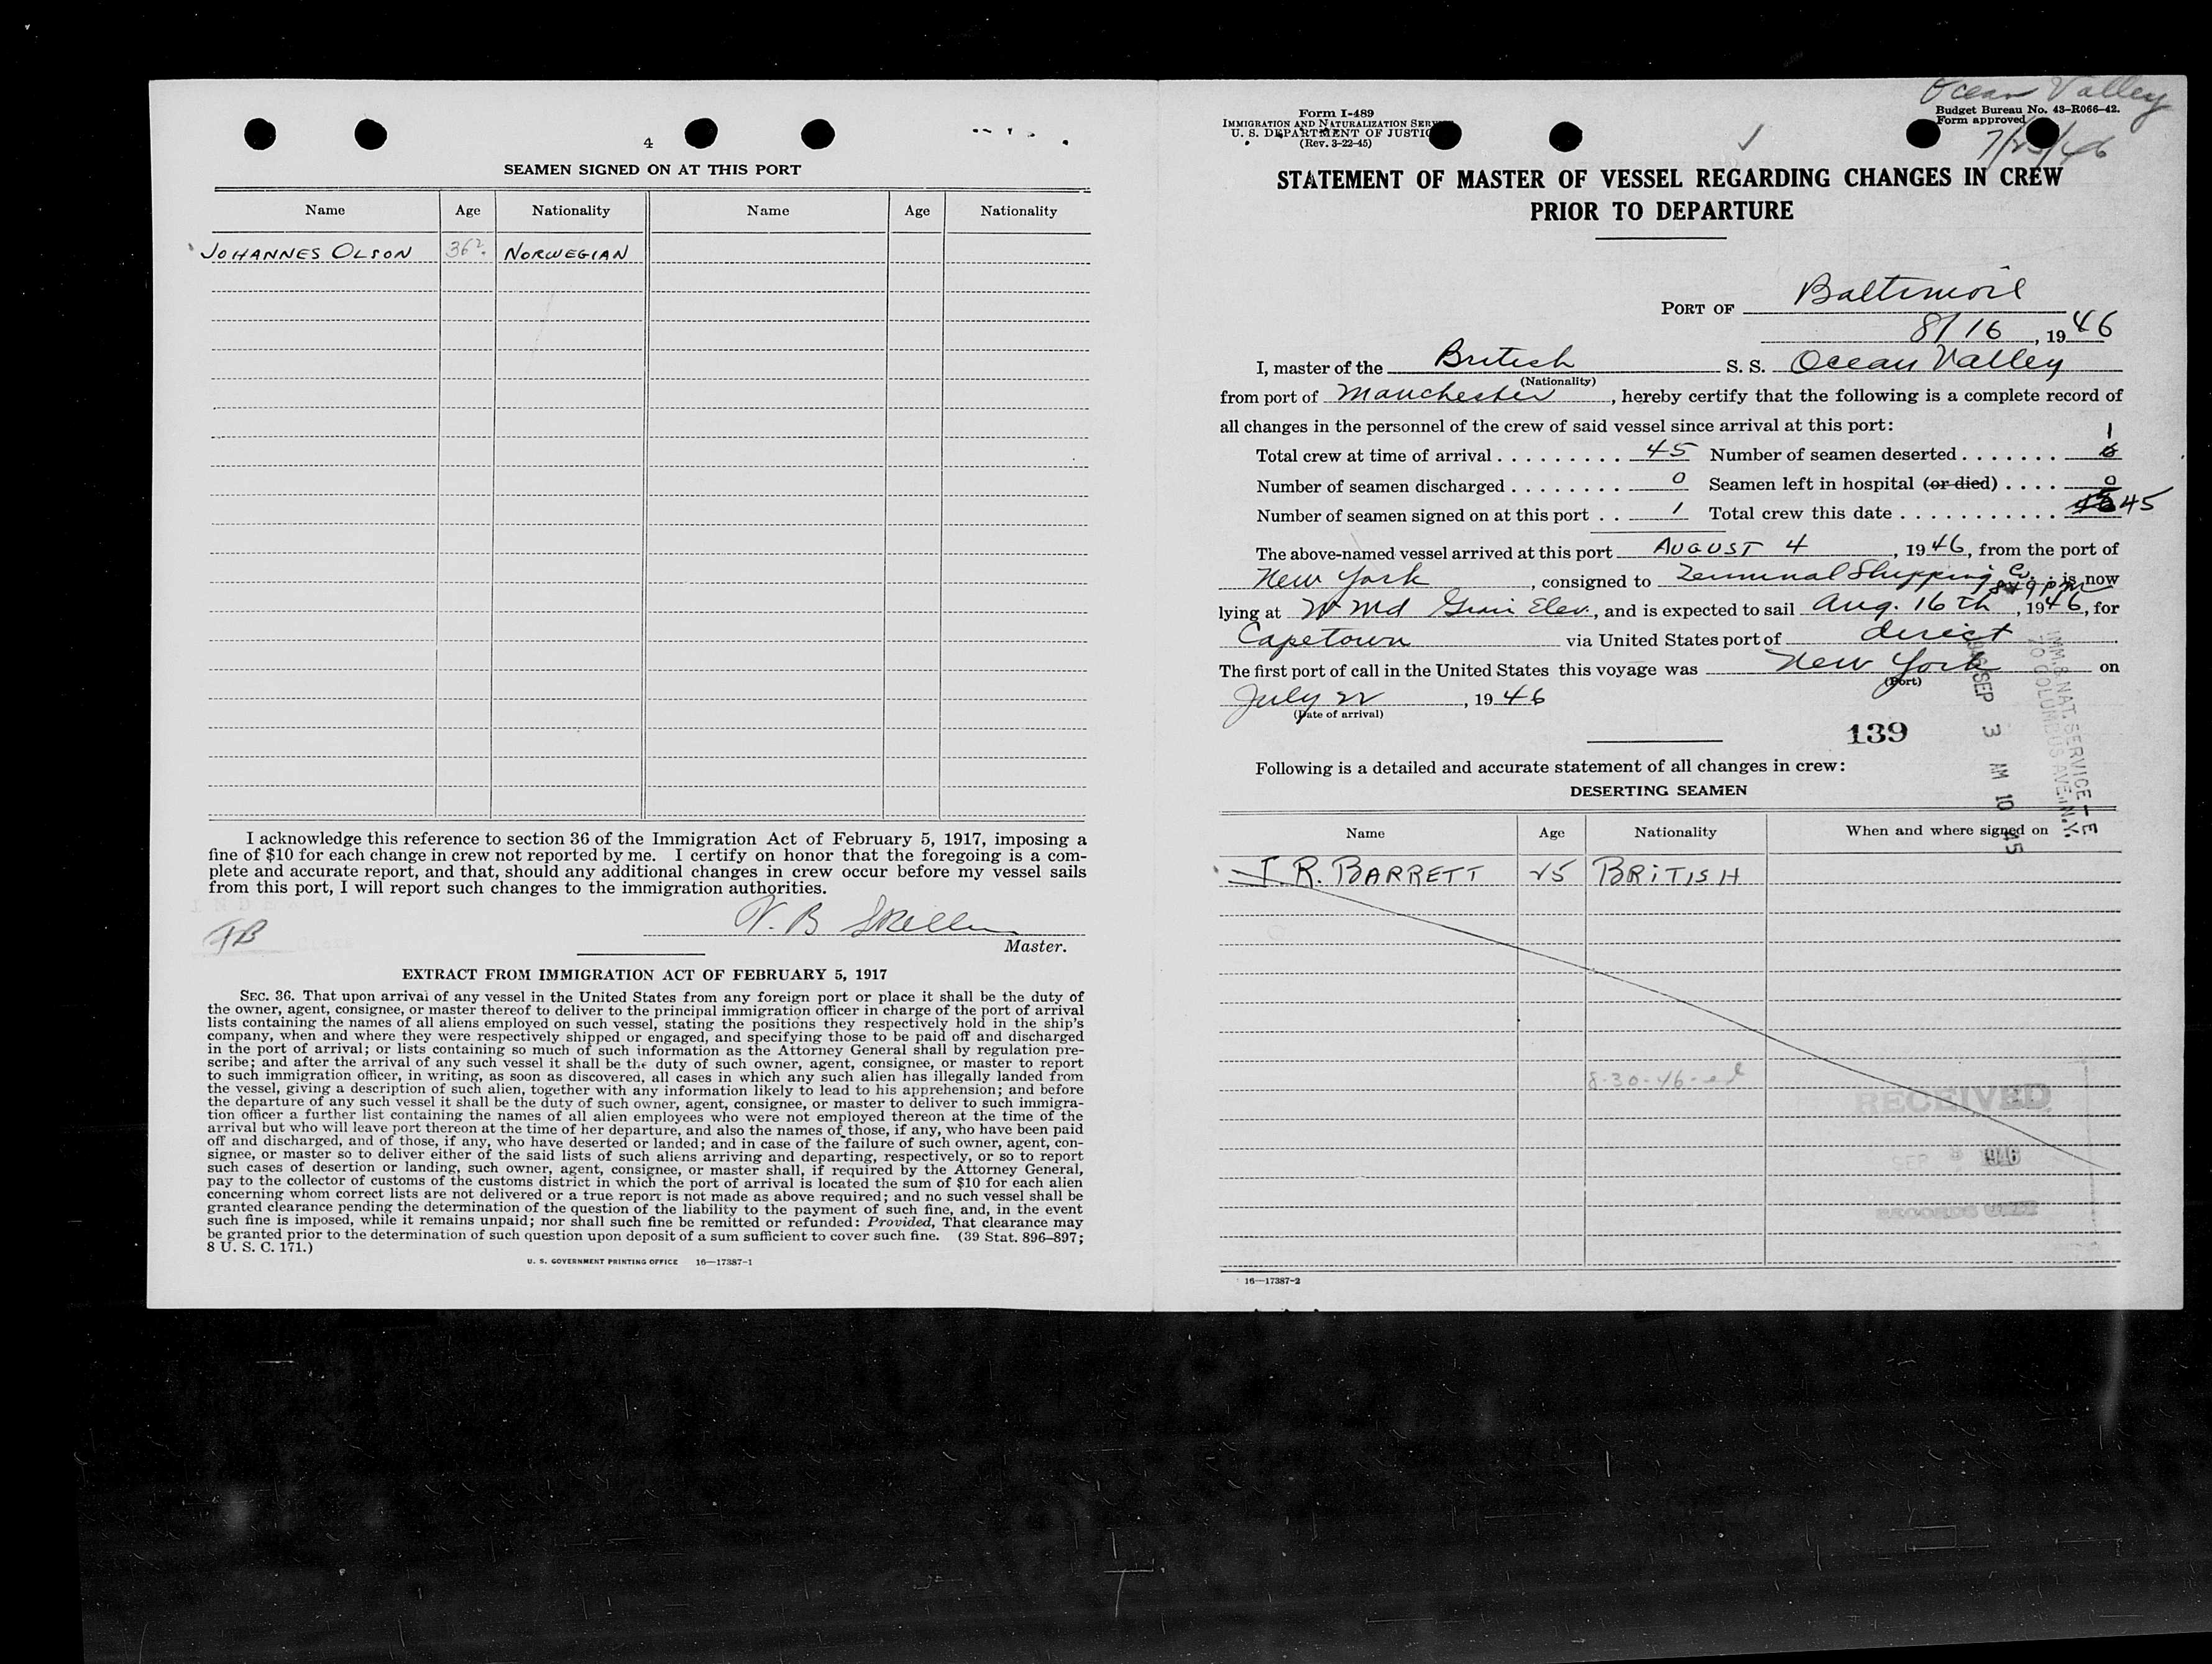 4
SEAMEN SIGNED ON AT THIS PORT
Name Age Nationality Name Age Nationality
JOHANNES OLSON 36?. NORWEGIAN
I acknowledge this reference to section 36 of the Immigration Act of February 5, 1917, imposing a
fine of $10 for each change in crew not reported by me. I certify on honor that the foregoing is a com-
plete and accurate report, and that, should any additional changes in crew occur before my vessel sails
from this port, I will report such changes to the immigration authorities.
Master.
EXTRACT FROM IMMIGRATION ACT OF FEBRUARY 5, 1917
SEC. 36. That upon arrival of any vessel in the United States from any foreign port or place it shall be the duty of
the owner, agent, consignee, or master thereof to deliver to the principal immigration officer in charge of the port of arrival
lists containing the names of all aliens employed on such vessel, stating the positions they respectively hold in the ship's
company, when and where they were respectively shipped or engaged, and specifying those to be paid off and discharged
in the port of arrival; or lists containing so much of such information as the Attorney General shall by regulation pre-
scribe; and after the arrival of any such vessel it shall be the duty of such owner, agent, consignee, or master to report
to such immigration officer, in writing, as soon as discovered, all cases in which any such alien has illegally landed from
the vessel, giving a description of such alien, together with any information likely to lead to his apprehension; and before
the departure of any such vessel it shall be the duty of such owner, agent, consignee, or master to deliver to such immigra-
tion officer a further list containing the names of all alien employees who were not employed thereon at the time of the
arrival but who will leave port thereon at the time of her departure, and also the names of those, if any, who have been paid
off and discharged, and of those, if any, who have deserted or landed; and in case of the failure of such owner, agent, con-
signee, or master so to deliver either of the said lists of such aliens arriving and departing, respectively, or so to report
such cases of desertion or landing, such owner, agent, consignee, or master shall, if required by the Attorney General,
pay to the collector of customs of the customs district in which the port of arrival is located the sum of $10 for each alien
concerning whom correct lists are not delivered or a true report is not made as above required; and no such vessel shall be
granted clearance pending the determination of the question of the liability to the payment of such fine, and, in the event
such fine is imposed, while it remains unpaid; nor shall such fine be remitted or refunded: Provided, That clearance may
be granted prior to the determination of such question upon deposit of a sum sufficient to cover such fine. (39 Stat. 896–897;
8 U. S. C. 171.)
U. S. GOVERNMENT PRINTING OFFICE 16—17387-1
Ocean Valley
Form I-489
IMMIGRATION AND NATURALIZATION SERV
U. S. DEPARTMENT OF JUSTIC
(Rev. 3-22-45)
Budget Bureau No. 43-R066-42.
Form approved
STATEMENT OF MASTER OF VESSEL REGARDING CHANGES IN CREW
PRIOR TO DEPARTURE
PORT OF Baltimore
8/16, 1946
I, master of the British S. S. Ocean Valley
(Nationality)
from port of Manchester, hereby certify that the following is a complete record of
all changes in the personnel of the crew of said vessel since arrival at this port:
Total crew at time of arrival 45 Number of seamen deserted 1
Number of seamen discharged 0 Seamen left in hospital (or died) 0
Number of seamen signed on at this port 1 Total crew this date 45
The above-named vessel arrived at this port AUGUST 4, 1946, from the port of
New York, consigned to Terminal Shipping Co. is now
lying at W Md Grain Elev., and is expected to sail Aug. 16th 9 pm, 1946, for
Capetown via United States port of direct.
The first port of call in the United States this voyage was New York on
(Port)
July 22, 1946
(Date of arrival)
139
1946 SEP 3 AM 10 45
IMM. & NAT. SERVICE
70 COLUMBUS AVE. N.Y.
Following is a detailed and accurate statement of all changes in crew:
DESERTING SEAMEN
Name Age Nationality When and where signed on
R. BARRETT 25 BRITISH
8-30-46
RECEIVED
SEP 1946
16—17387-2